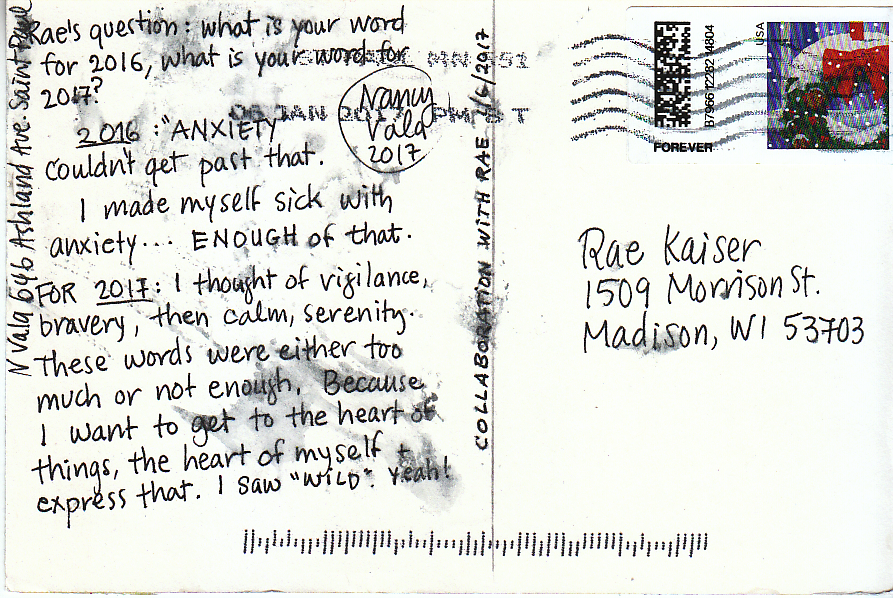 Rae's question: what is your word
for 2016, what is your word for
2017?
2016: "ANXIETY"
Couldn't get past that.
I made myself sick with
anxiety... ENOUGH of that.
FOR 2017: I thought of vigilance,
bravery, then calm, serenity.
These words were either too
much or not enough. Because
I want to get to the heart of
things, the heart of myself +
express that. I saw "WILD". Yeah!
Nancy
Vala
2017
N Vala 646 Ashland Ave. Saint Paul
COLLABORATION WITH RAE 1/6/2017
MN 551
06 JAN 2017 PM
USA
FOREVER
Rae Kaiser
1509 Morrison St.
Madison, WI 53703